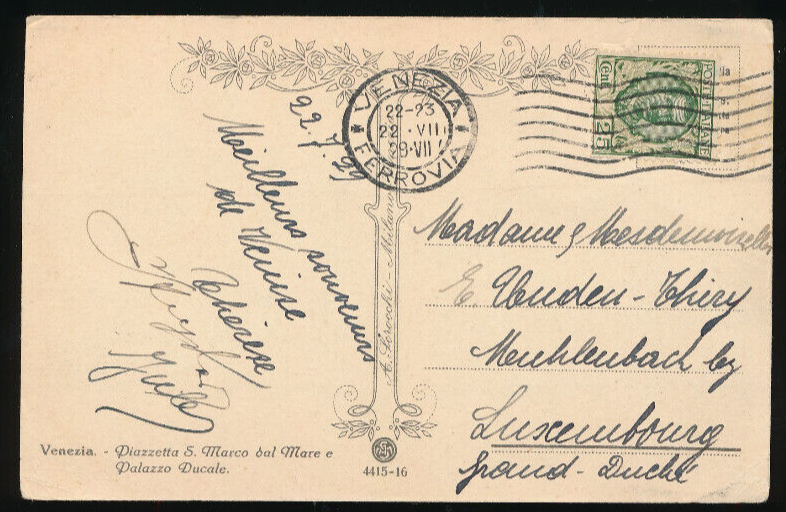 22.7.29
Meilleurs souvenirs
de Venise
Thérèse
VENEZIA
22-23
22 · VII
29·VII
FERROVIA
Cent. 25
POSTE ITALIANE
Madame & Mesdemoiselles
E. Uenden-Thiry
Muhlenbach by
Luxembourg
Grand-Duché
A. Scrocchi - Milano
Venezia. - Piazzetta S. Marco dal Mare e
Palazzo Ducale.
4415-16